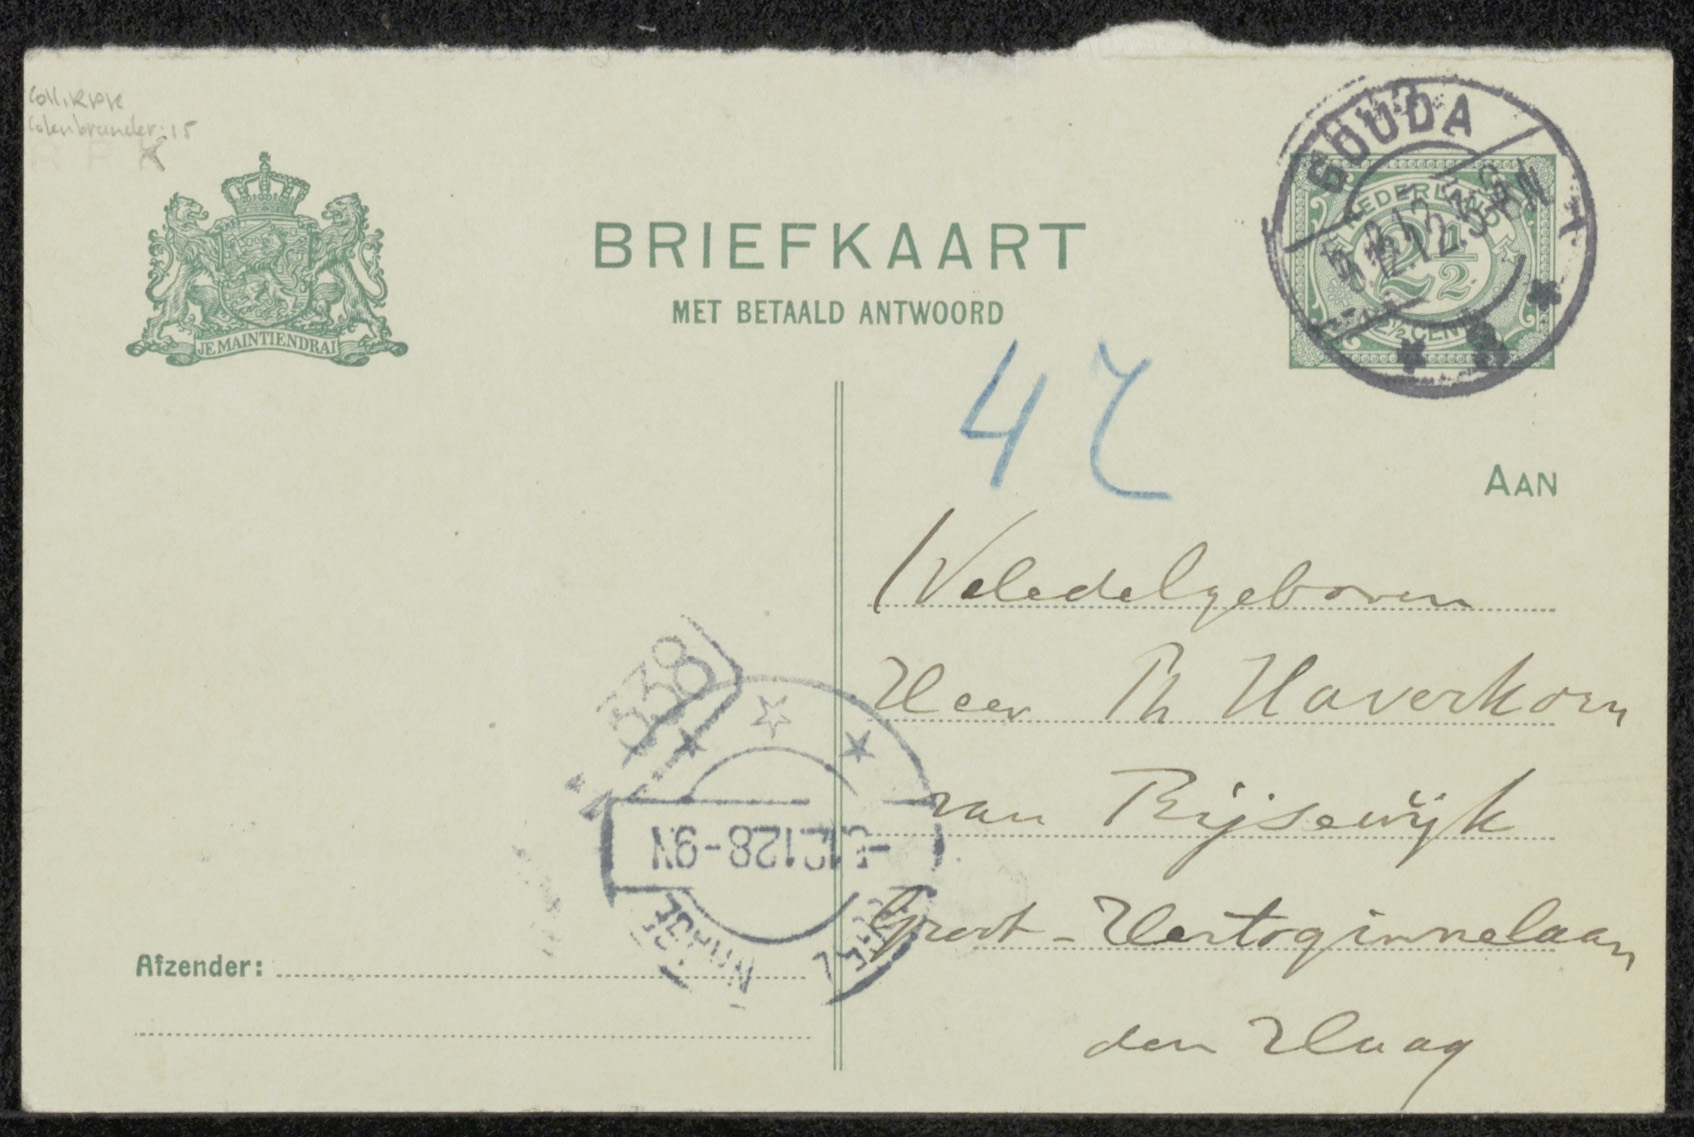 Coll. RPK
Colenbrander: 15
R P K
JE MAINTIENDRAI
BRIEFKAART
MET BETAALD ANTWOORD
GOUDA
NEDERLAND
2½
2½ CENT
47
AAN
Weledelgeboren
Heer Th Haverkorn
van Rijsewijk
Groot-Hertoginnelaan
den Haag
538
-5.12.12 8-9N
Afzender: